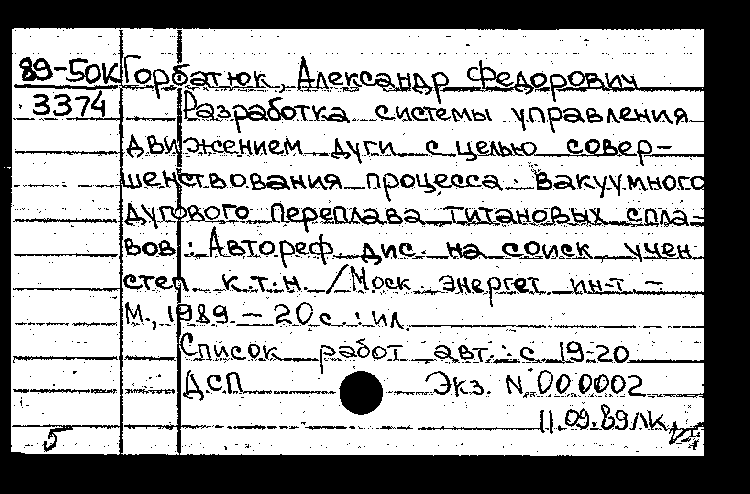 89-50К Горбатюк, Александр Федорович
3374 Разработка системы управления
движением дуги с целью совер-
шенствования процесса вакуумного
дугового переплава титановых спла-
вов : Автореф. дис. на соиск. учен.
степ. к.т.н. / Моск. энергет. ин-т. –
М., 1989. – 20 с. : ил.
Список работ авт.: с. 19-20
ДСП Экз. N 000002
11.09.89 ЛК
5